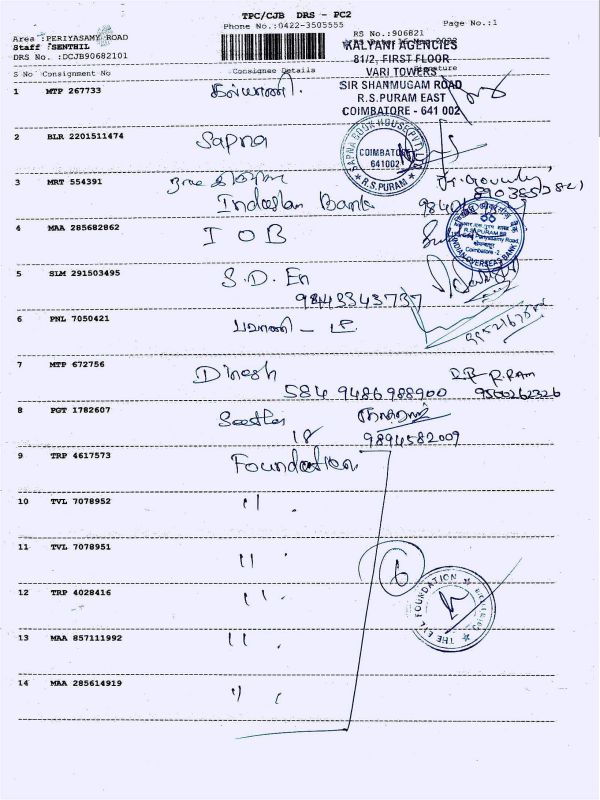 TPC/CJB DRS - PC2
Phone No.:0422-3505555
Page No.:1
RS No.:906821
Area :PERIYASAMY ROAD
Staff :SENTHIL
DRS No. :DCJB90682101
KALYANI AGENCIES
81/2, FIRST FLOOR
VARI TOWERS
SIR SHANMUGAM ROAD
R.S.PURAM EAST
COIMBATORE - 641 002
S No Consignment No Consignee Details Signature
1 MTP 267733 கல்யாணி.
2 BLR 2201511474 Sapna
SAPNA BOOK HOUSE PVT
COIMBATORE
641002
★ R.S.PURAM ★
3 MRT 554391
Indian Bank
4 MAA 285682862 I O B
INDIAN OVERSEAS BANK
Coimbatore -2
5 SLM 291503495 S.D. En
9843343737
6 PNL 7050421 பவானி -
7 MTP 672756 Dinesh R.RAM
584 9486988900 9500262326
8 PGT 1782607
18 9894582009
9 TRP 4617573 Foundation
10 TVL 7078952 "
11 TVL 7078951 "
12 TRP 4028416 "
6
THE EYE FOUNDATION
13 MAA 857111992 "
14 MAA 285614919 "